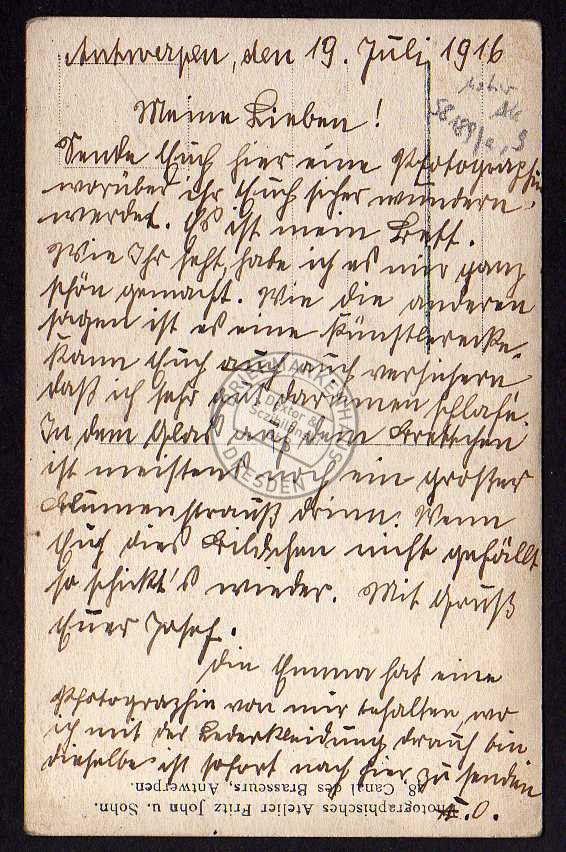 Antwerpen, den 19. Juli 1916
Meine Lieben!
Sende Euch hier eine Photographie
worüber ihr Euch sicher wundern
werdet. Es ist mein Bett.
Wie Ihr seht, habe ich es mir ganz
schön gemacht. Wie die anderen
sagen ist es eine Künstlerecke.
Kann Euch auch auch versichern
daß ich sehr gut darinnen schlafe.
In dem Glas auf dem Brettchen
ist meistens noch ein großer
Blumenstrauß drinn. Wenn
Euch dies Bildchen nicht gefällt
so schickt's wieder. Mit Gruß
Euer Josef.
Die Emma hat eine
Photographie von mir behalten, wo
ich mit der Lederkleidung drauf bin
dieselbe ist sofort nach hier zu senden
D. O.
Photographisches Atelier Fritz John u. Sohn.
48, Canal des Brasseurs, Antwerpen.
BRIEFMARKENHAUS
DRESDEN